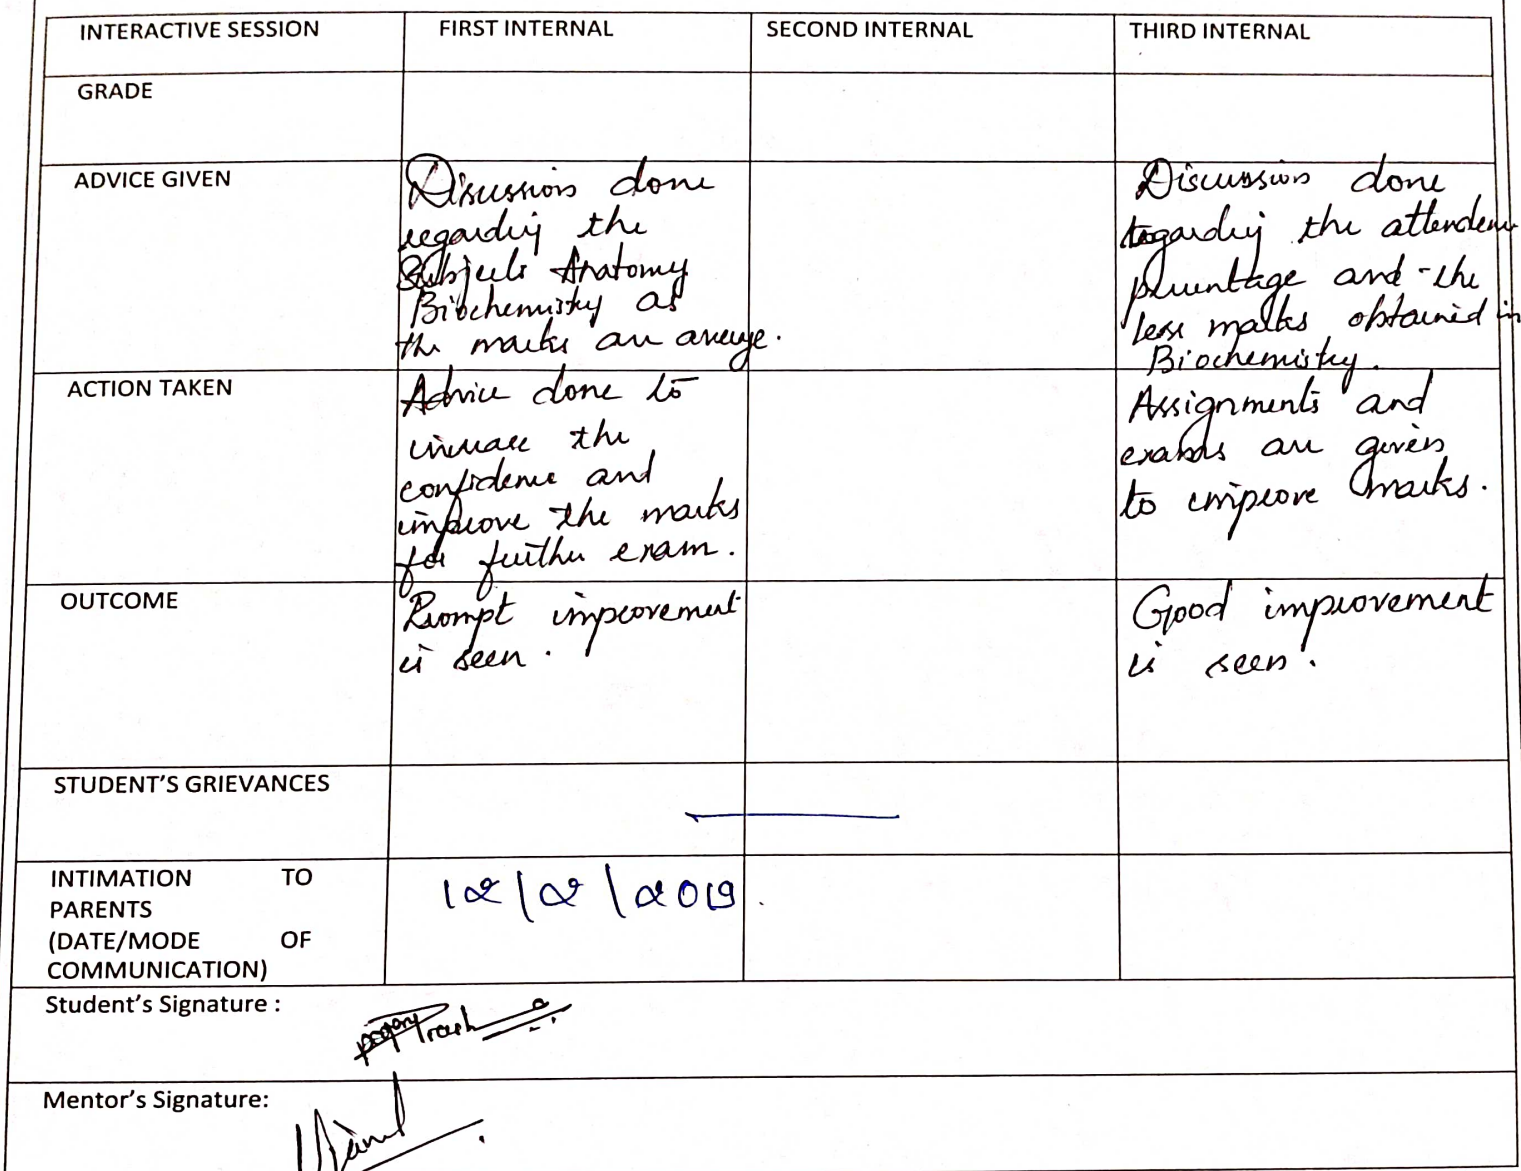 INTERACTIVE SESSION FIRST INTERNAL SECOND INTERNAL THIRD INTERNAL
GRADE
ADVICE GIVEN
Discussion done
regarding the
Subjects Anatomy
Biochemistry as
the marks are average.
Discussion done
regarding the attendence
percentage and the
less marks obtained in
Biochemistry.
ACTION TAKEN
Advice done to
increase the
confidence and
improve the marks
for further exam.
Assignments and
are given
to improve marks.
OUTCOME
Prompt improvement
is seen.
Good improvement
is seen.
STUDENT'S GRIEVANCES
INTIMATION TO
PARENTS
(DATE/MODE OF
COMMUNICATION)
12/2/2019.
Student's Signature :
Mentor's Signature: